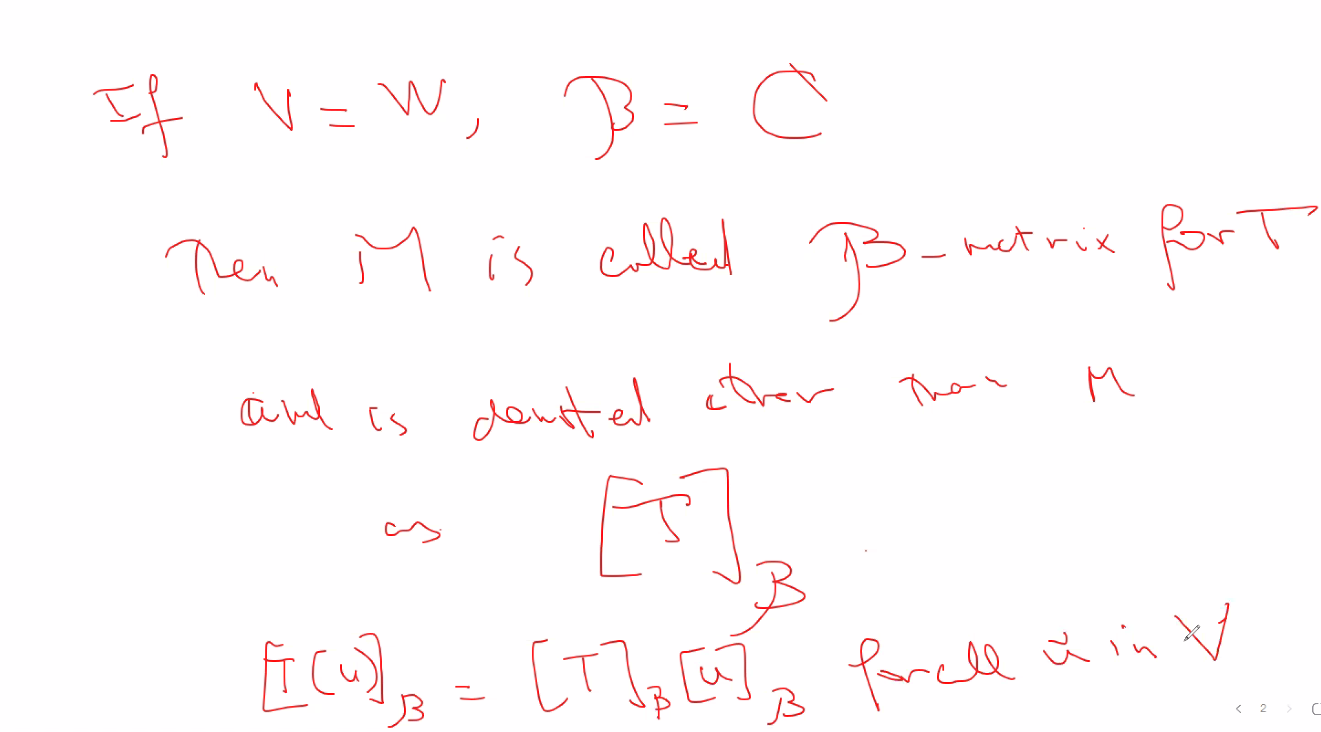 If V = W, B = C
Then M is called B-matrix for T
and is denoted other than M
as [T]_B
[T(u)]_B = [T]_B [u]_B for all u in V
< 2 >